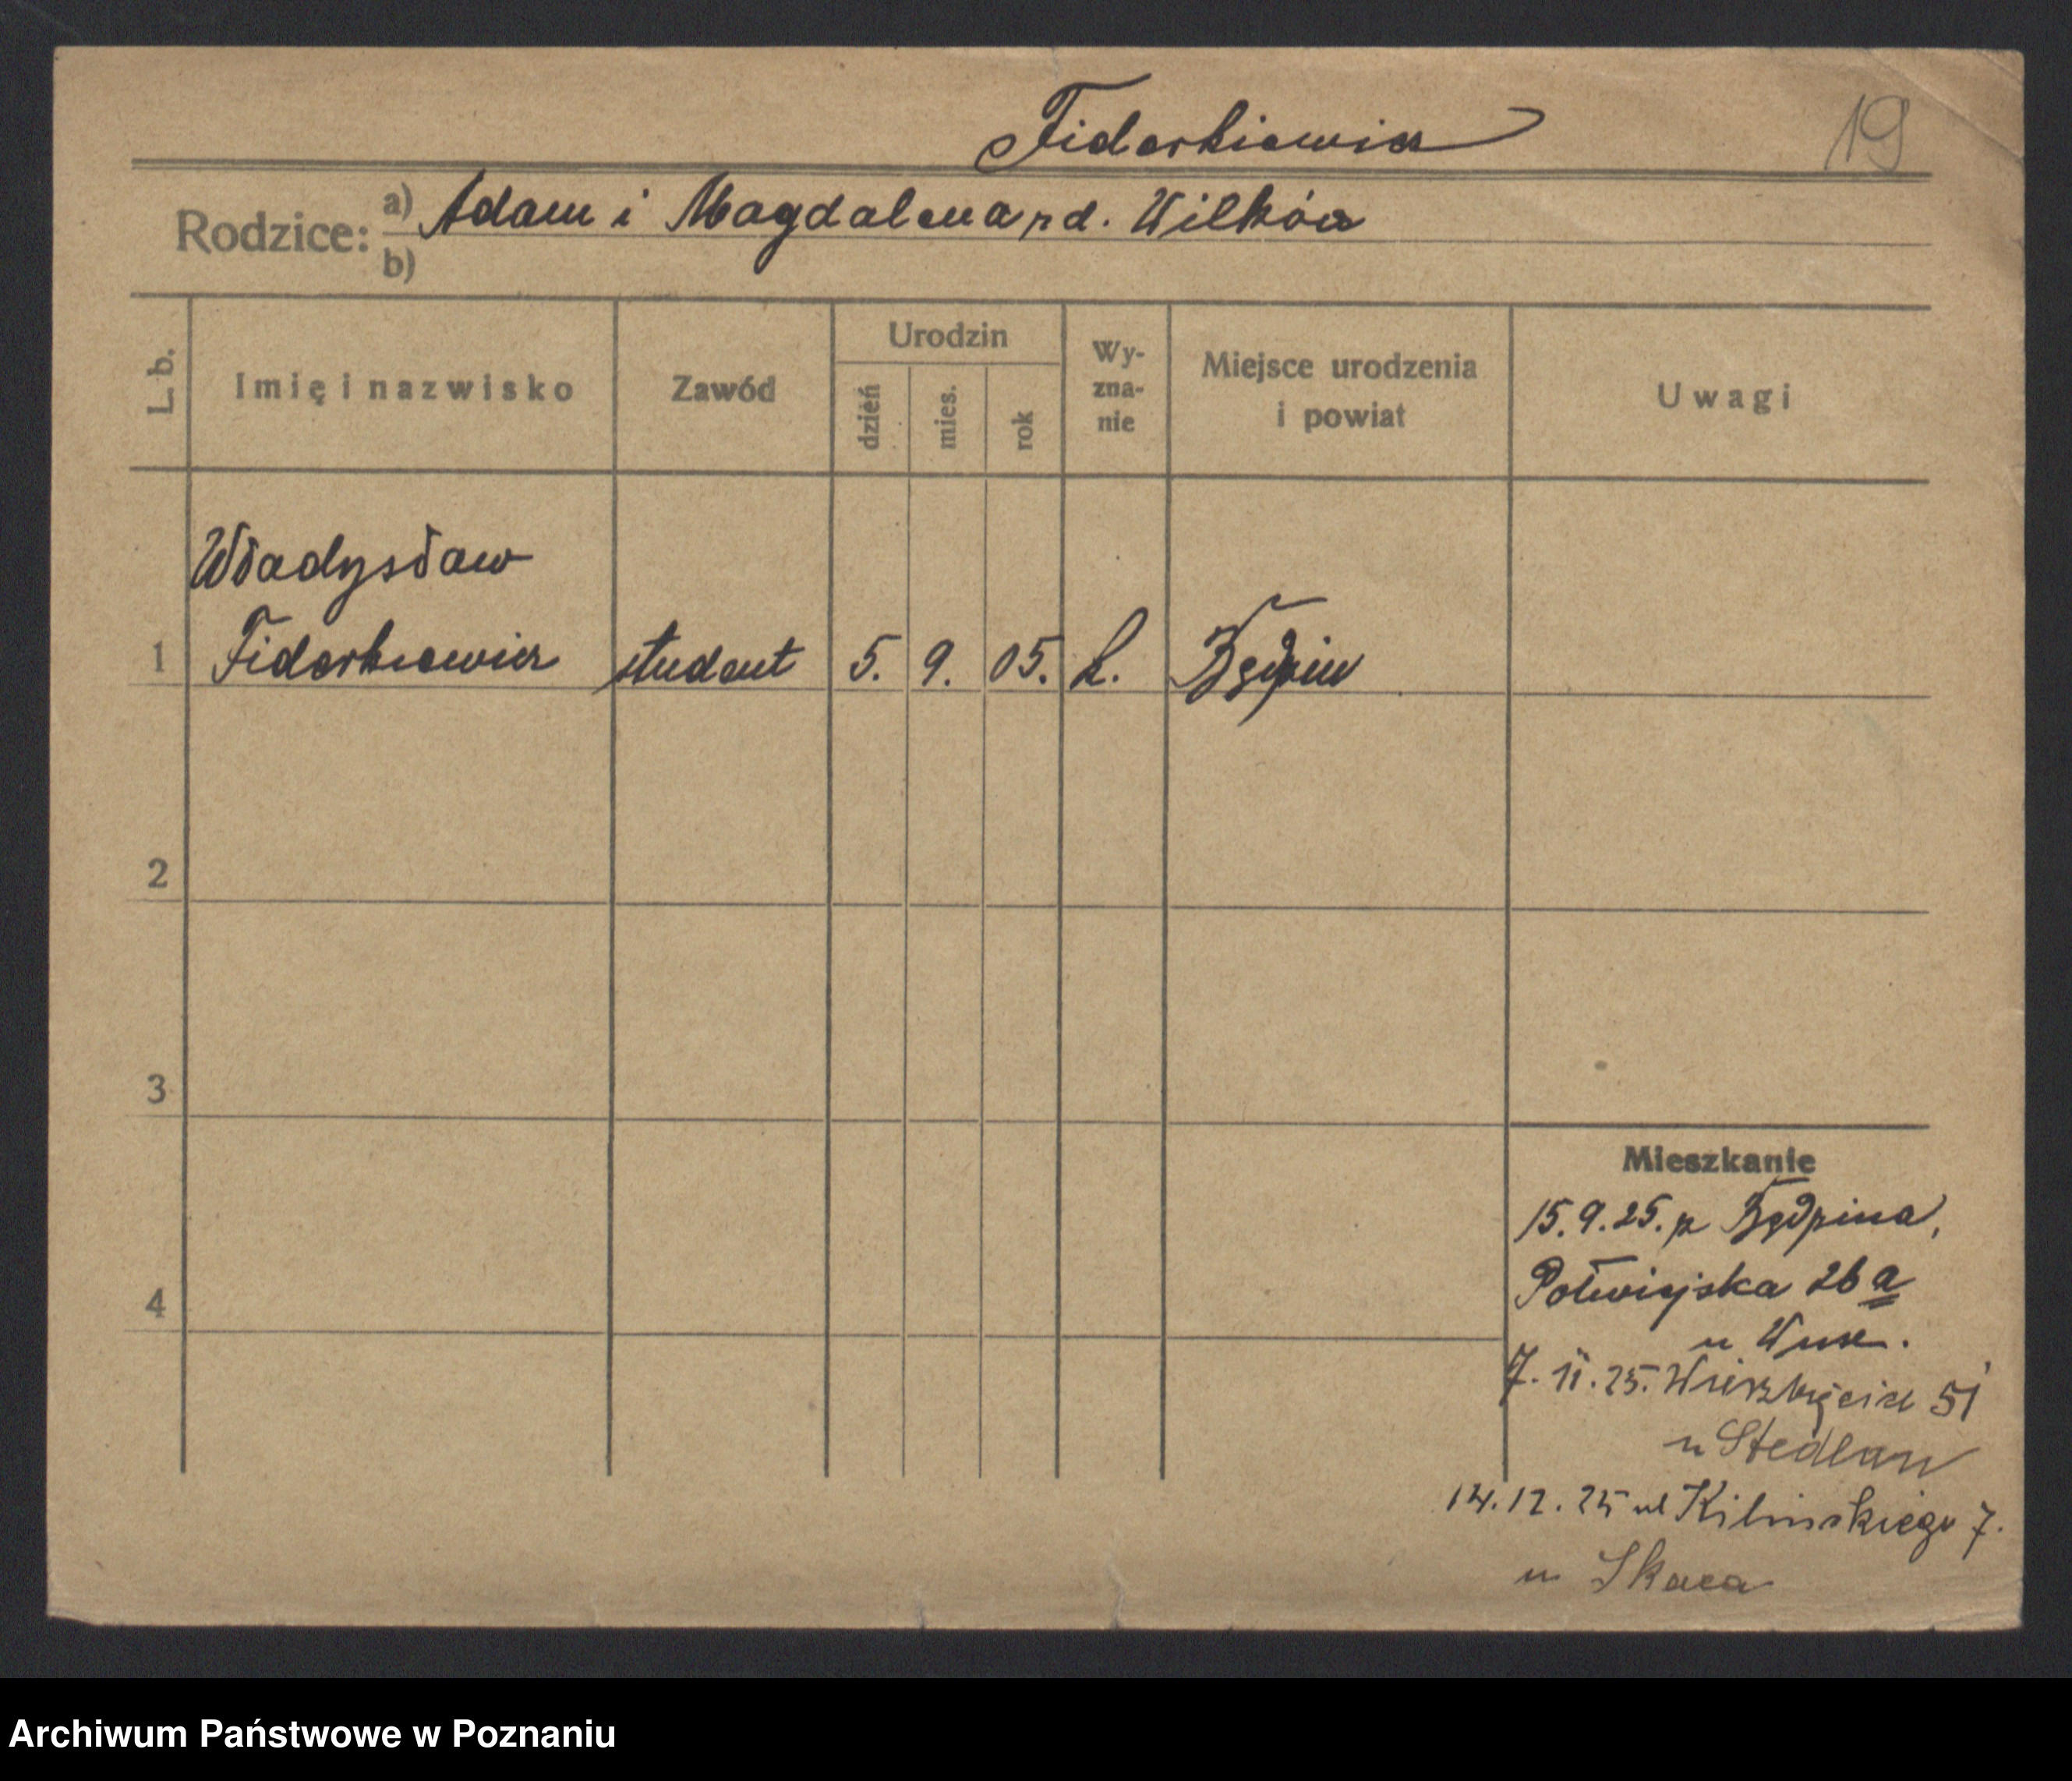 Fiderkiewicz
19
Rodzice: a) Adam i Magdalena rd. Wilków
b)
L. b. Imię i nazwisko Zawód Urodzin dzień mies. rok Wyznanie Miejsce urodzenia i powiat Uwagi
Władysław
1 Fiderkiewicz student 5. 9. 05. k.
2
3
4
Mieszkanie
15.9.25. z
Półwiejska 26 a
u
7. 11. 25. Wierzbięcice 51
u
14. 12. 25 ul Kilinskiego 7.
u
Archiwum Państwowe w Poznaniu